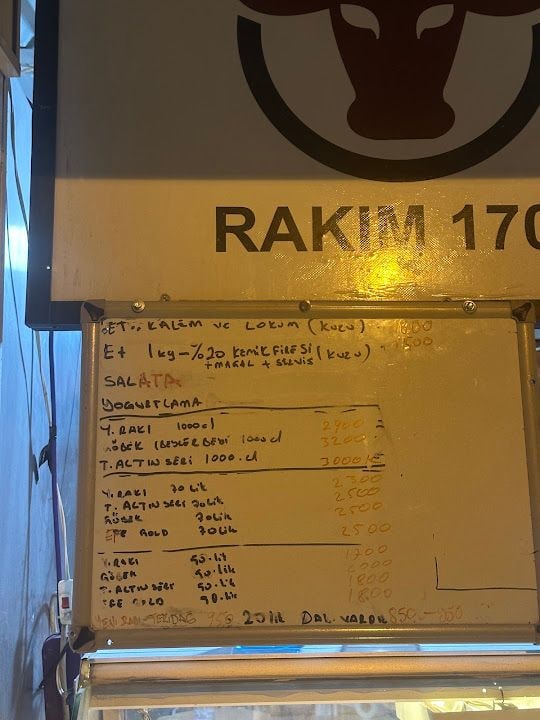 RAKIM 170
ET.. KALEM ve LOKUM (KUZU)
Et 1kg-%20 KEMİK FİRESİ (KUZU) 1500
+MAGAL + SERVİS
SALATA
YOGURTLAMA
Y. RAKI 1000cl 2900
GÖBEK (BEYLERBEYİ 1000cl 3200
T. ALTIN SERİ 1000.cl 3000
Y. RAKI 70 Lik 2300
T. ALTIN SERİ 70Lik 2500
GÖBEK 70Lik 2500
EFE GOLD 70Lik 2500
Y. RAKI 50.Lik 1700
GÖBEK 50.Lik
T. ALTIN SERİ 50.Lik 1800
EFE GOLD 50.Lik 1800
YENİ RAKI TEKİRDAG 950 20lik DAL. VARDR 850.-950